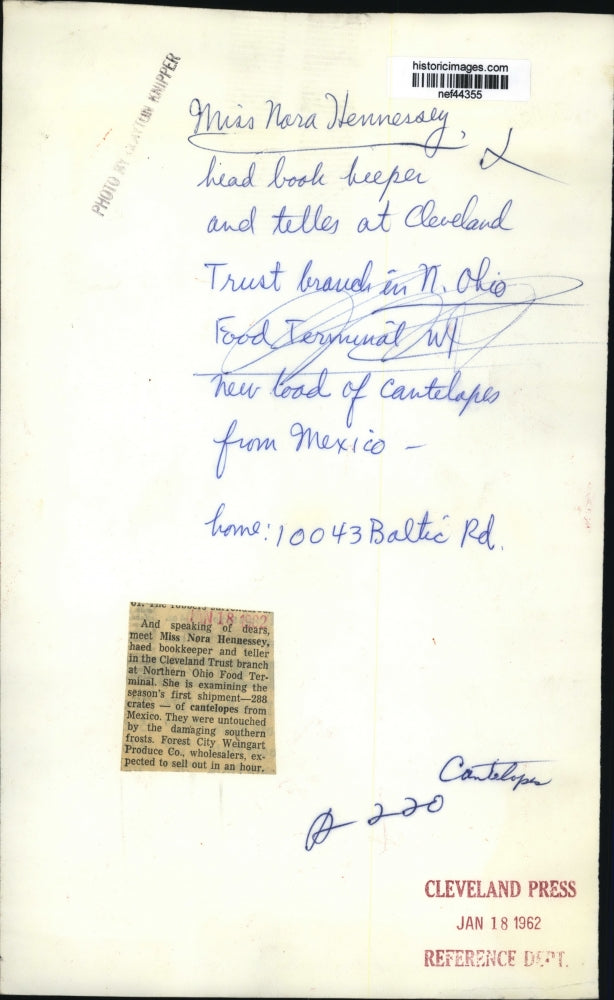 historicimages.com
nef44355
PHOTO BY CLAYTON KNIPPER
Miss Nora Hennessey,
head book keeper
and telles at Cleveland
Trust branch in N. Ohio
Food Terminal W/
new load of cantelopes
from Mexico -
home: 10043 Baltic Rd.
JAN 18 1962
And speaking of dears,
meet Miss Nora Hennessey,
haed bookkeeper and teller
in the Cleveland Trust branch
at Northern Ohio Food Ter-
minal. She is examining the
season's first shipment—288
crates — of cantelopes from
Mexico. They were untouched
by the damaging southern
frosts. Forest City Weingart
Produce Co., wholesalers, ex-
pected to sell out in an hour.
Cantelopes
A-220
CLEVELAND PRESS
JAN 18 1962
REFERENCE DEPT.